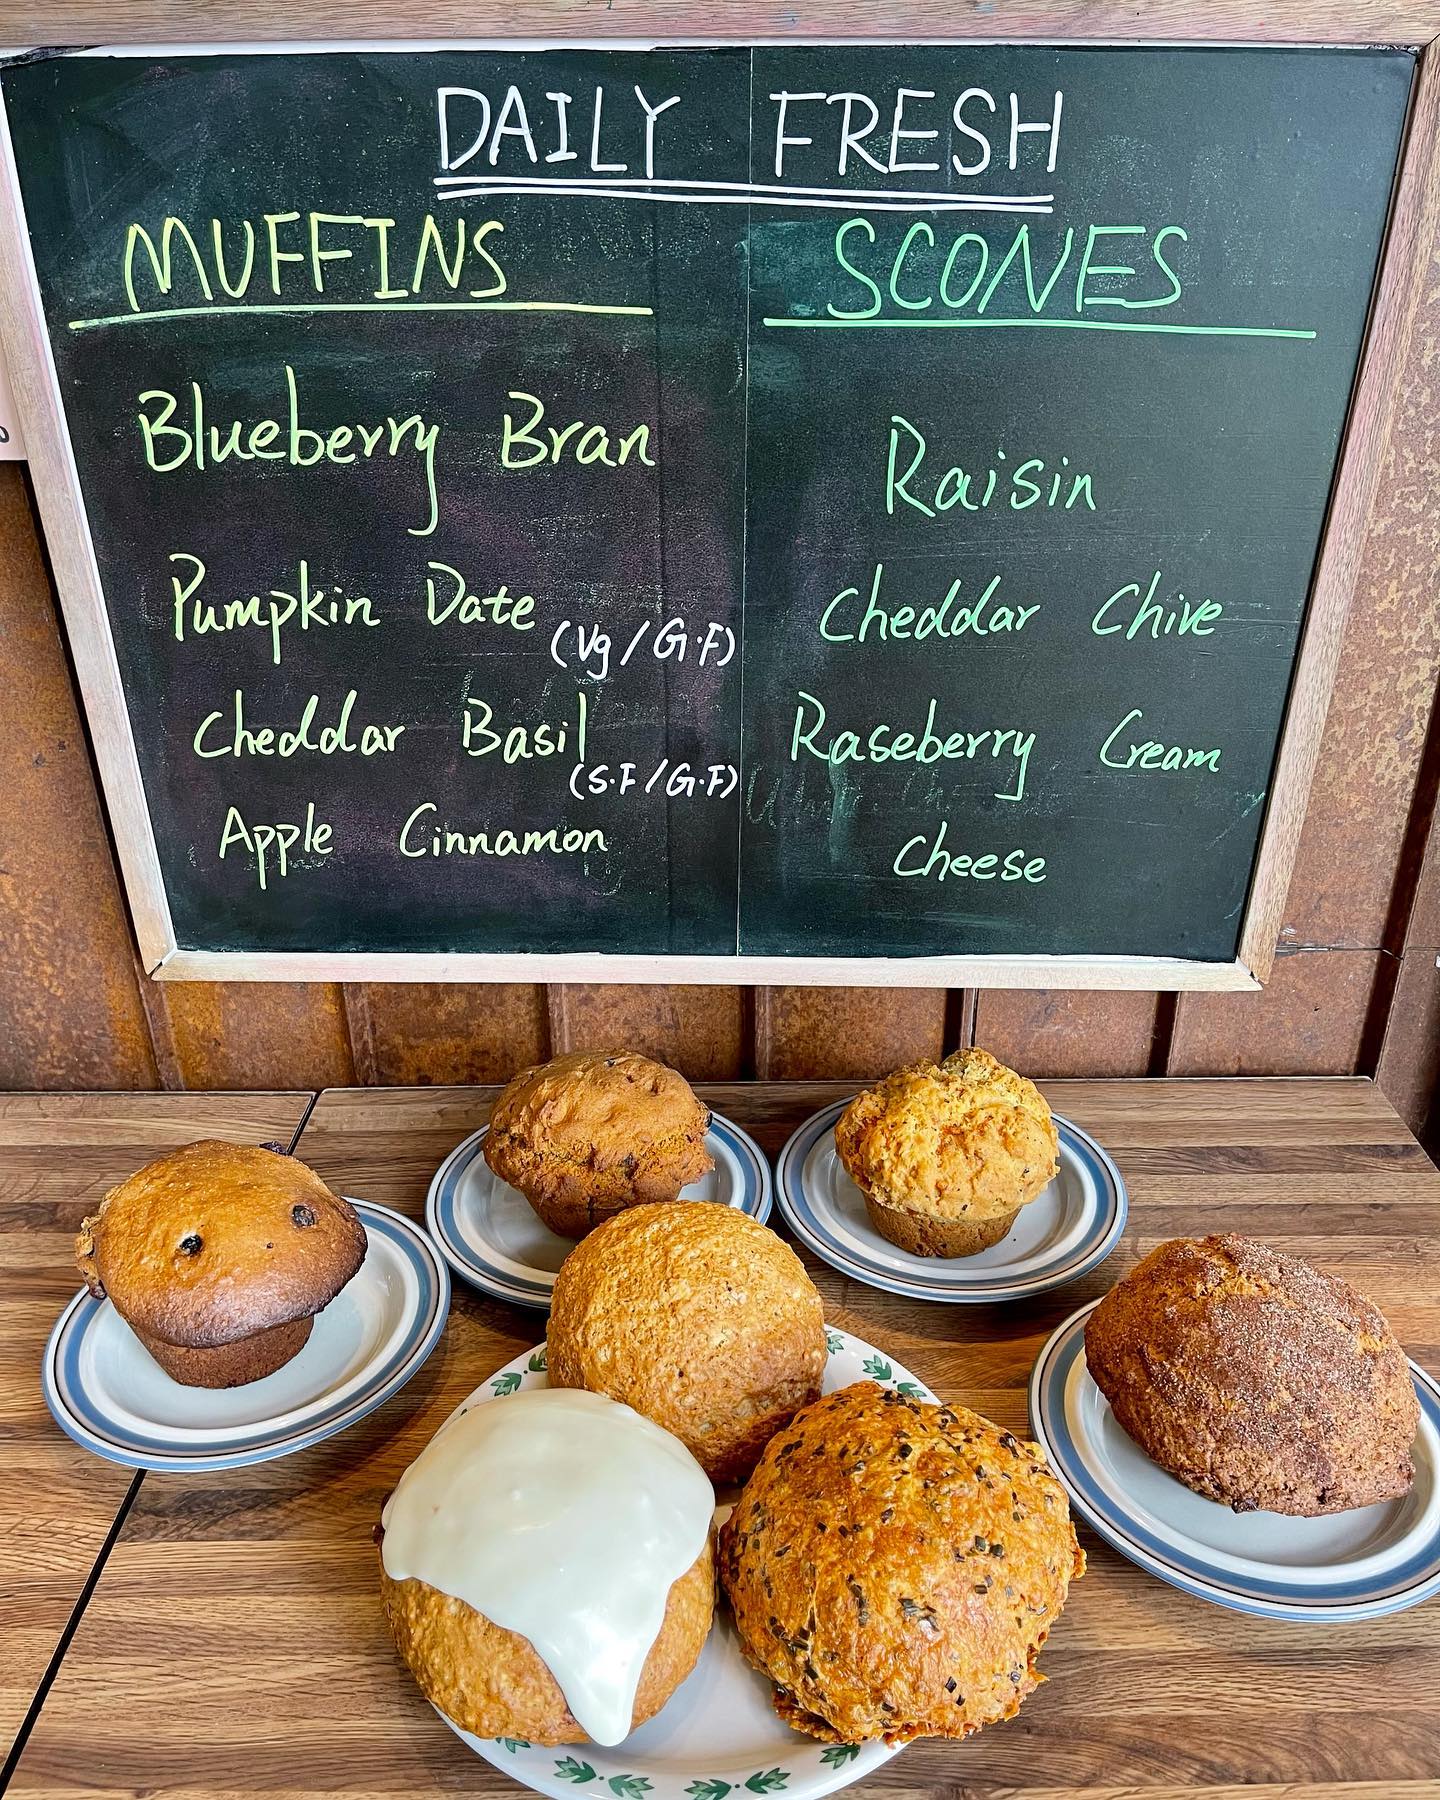 DAILY FRESH
MUFFINS
Blueberry Bran
Pumpkin Date
(Vg/G.F)
Cheddar Basil
(S.F/G.F)
Apple Cinnamon
SCONES
Raisin
Cheddar Chive
Raseberry Cream
Cheese